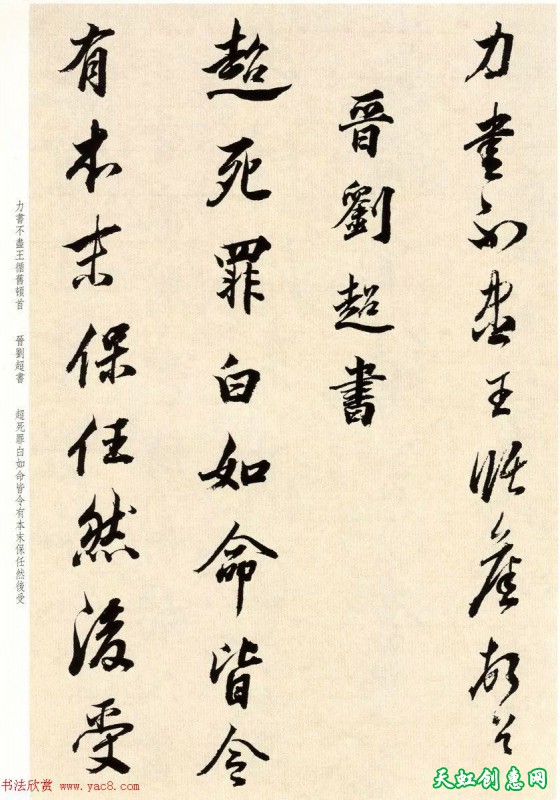 力書不盡王循舊頓首
晉劉超書
超死罪白如命皆令
有本末保任然後受
力書不盡王循舊頓首　晉劉超書　超死罪白如命皆令有本末保任然後受
书法欣赏 www.yac8.com
天虹创意网